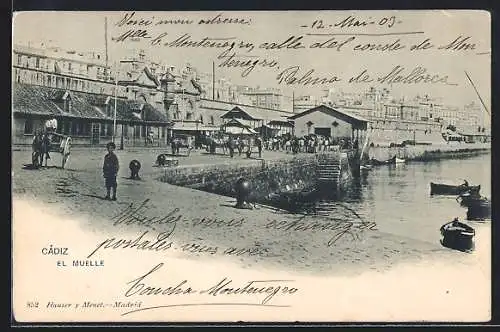 Voici mon adresse 12. Mai. 03
Mlle C. Montenegro, calle del conde de Mon-
tenegro,
Palma de Mallorca
Voulez-vous échanger
postales-vous avec
CÁDIZ
EL MUELLE
Concha Montenegro
852 Hauser y Menet.-Madrid